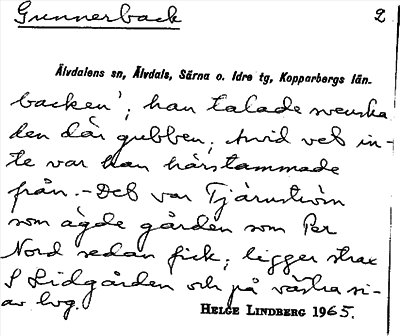 Gunnerback 2
Älvdalens sn, Älvdals, Särna o. Idre tg, Kopparbergs län-
backen'; han talade svenska
den där gubben; Arvid vet in-
te var han härstammade
från. - Det var Tjärnström
som ägde gården som Per
Nord sedan fick; ligger strax
S Lidgården och på västra si-
av bvg.
HELGE LINDBERG 1965.